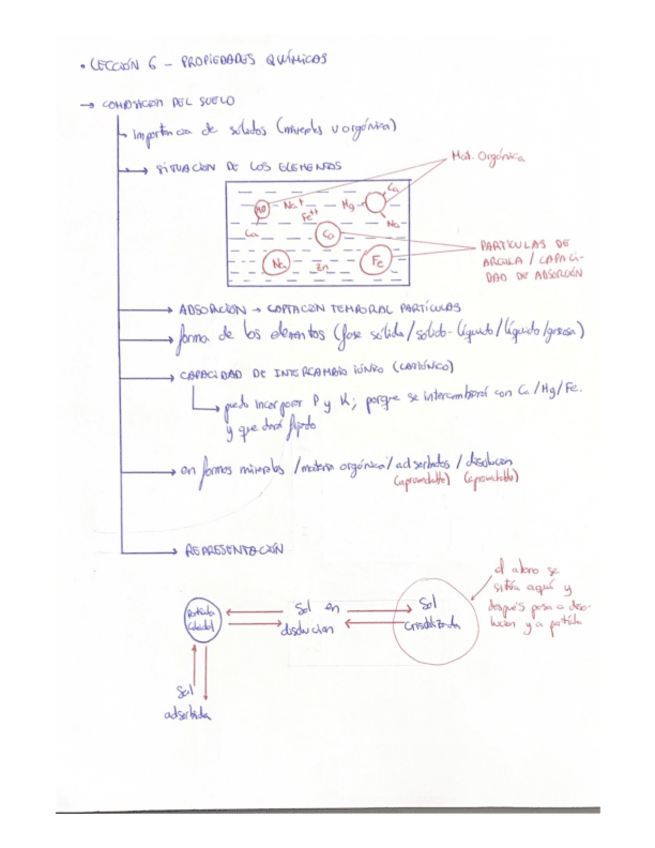 • LECCIÓN 6 – PROPIEDADES QUÍMICAS
→ COMPOSICIÓN DEL SUELO
Importancia de sólidos (minerales u orgánica)
→ SITUACION DE LOS ELEMENTOS
Mat. Orgónica
Ca
MO Na+ Mg
Fe++ Na
Ca Ca
Na Zn Fe
PARTICULAS DE
ARCILLA / CAPACI-
DAD DE ADSORCIÓN
→ ADSORCIÓN → CAPTACION TEMPORAL PARTÍCULAS
→ forma de los elementos (fase sólida/solido-líquido/líquido/gaseosa)
→ CAPACIDAD DE INTERCAMBIO IÓNICO (CATIÓNICO)
puedo incorporar P y K; porque se intercambiará con Ca/Mg/Fe.
y quedará fijado
→ en formas minerales /materia orgánica/ adsorbidos / disolucion
(aprovechable) (aprovechable)
→ REPRESENTACIÓN
el abono se
sitúa aquí y
después pasa a diso-
lucion y a partícula
Partícula
Coloidal
Sol en
disolucion
Sol
cristalizada
Sal
adsorbida